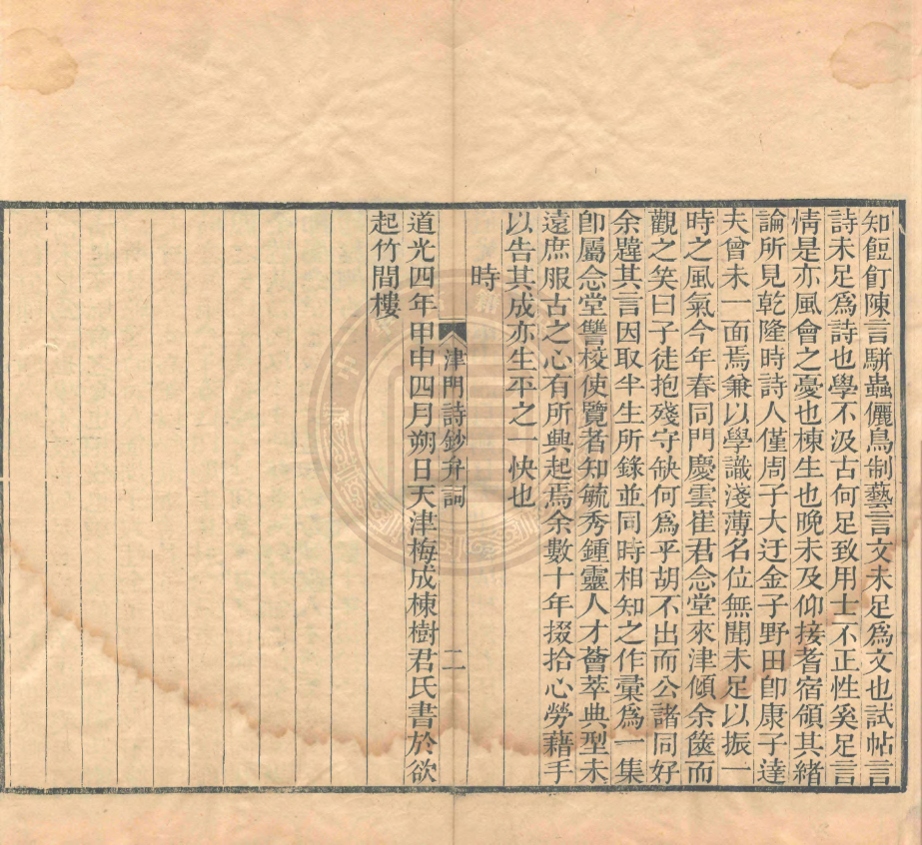 知飣餖陳言駢蟲儷鳥制藝言文未足爲文也試帖言
詩未足爲詩也學不汲古何足致用士不正性奚足言
情是亦風會之憂也棟生也晚未及仰接耆宿領其緒
論所見乾隆時詩人僅周子大迂金子野田卽康子達
夫曾未一面焉兼以學識淺薄名位無聞未足以振一
時之風氣今年春同門慶雲崔君念堂來津傾余篋而
觀之笑曰子徒抱殘守缺何爲乎胡不出而公諸同好
余韙其言因取半生所錄並同時相知之作彙爲一集
卽屬念堂讐校使覽者知毓秀鍾靈人才薈萃典型未
遠庶服古之心有所興起焉余數十年掇拾心勞藉手
以告其成亦生平之一快也
時
津門詩鈔弁詞 二
道光四年甲申四月朔日天津梅成棟樹君氏書於欲
起竹間樓